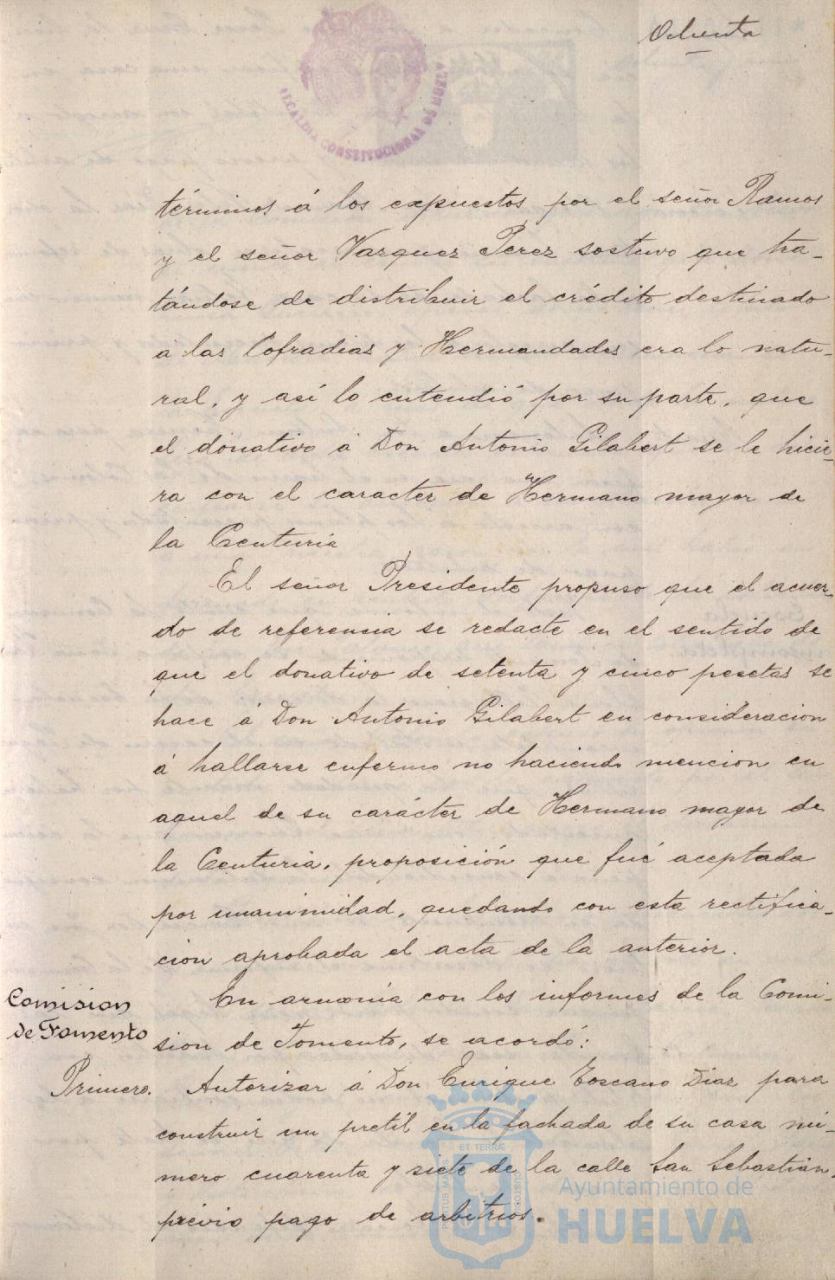 Ochenta
ALCALDIA CONSTITUCIONAL DE HUELVA
términos á los expuestos por el señor Ramos
y el señor Vazquez Perez sostuvo que tra-
tándose de distribuir el crédito destinado
á las Cofradias y Hermandades era lo natu-
ral, y así lo entendió por su parte, que
el donativo á Don Antonio Gilabert se le hicie-
ra con el caracter de Hermano mayor de
la Centuria
El señor Presidente propuso que el acuer-
do de referencia se redacte en el sentido de
que el donativo de setenta y cinco pesetas se
hace á Don Antonio Gilabert en consideracion
á hallarse enfermo no haciendo mencion en
aquel de su carácter de Hermano mayor de
la Centuria, proposición que fué aceptada
por unanimidad, quedando con esta rectifica-
cion aprobada el acta de la anterior.
Comision
de Fomento
En armonía con los informes de la Comi-
sion de Fomento, se acordó:
Primero. Autorizar á Don Enrique Toscano Diaz para
construir un pretil en la fachada de su casa nú-
mero cuarenta y siete de la calle San Sebastián,
previo pago de arbitrios.
Ayuntamiento de
HUELVA